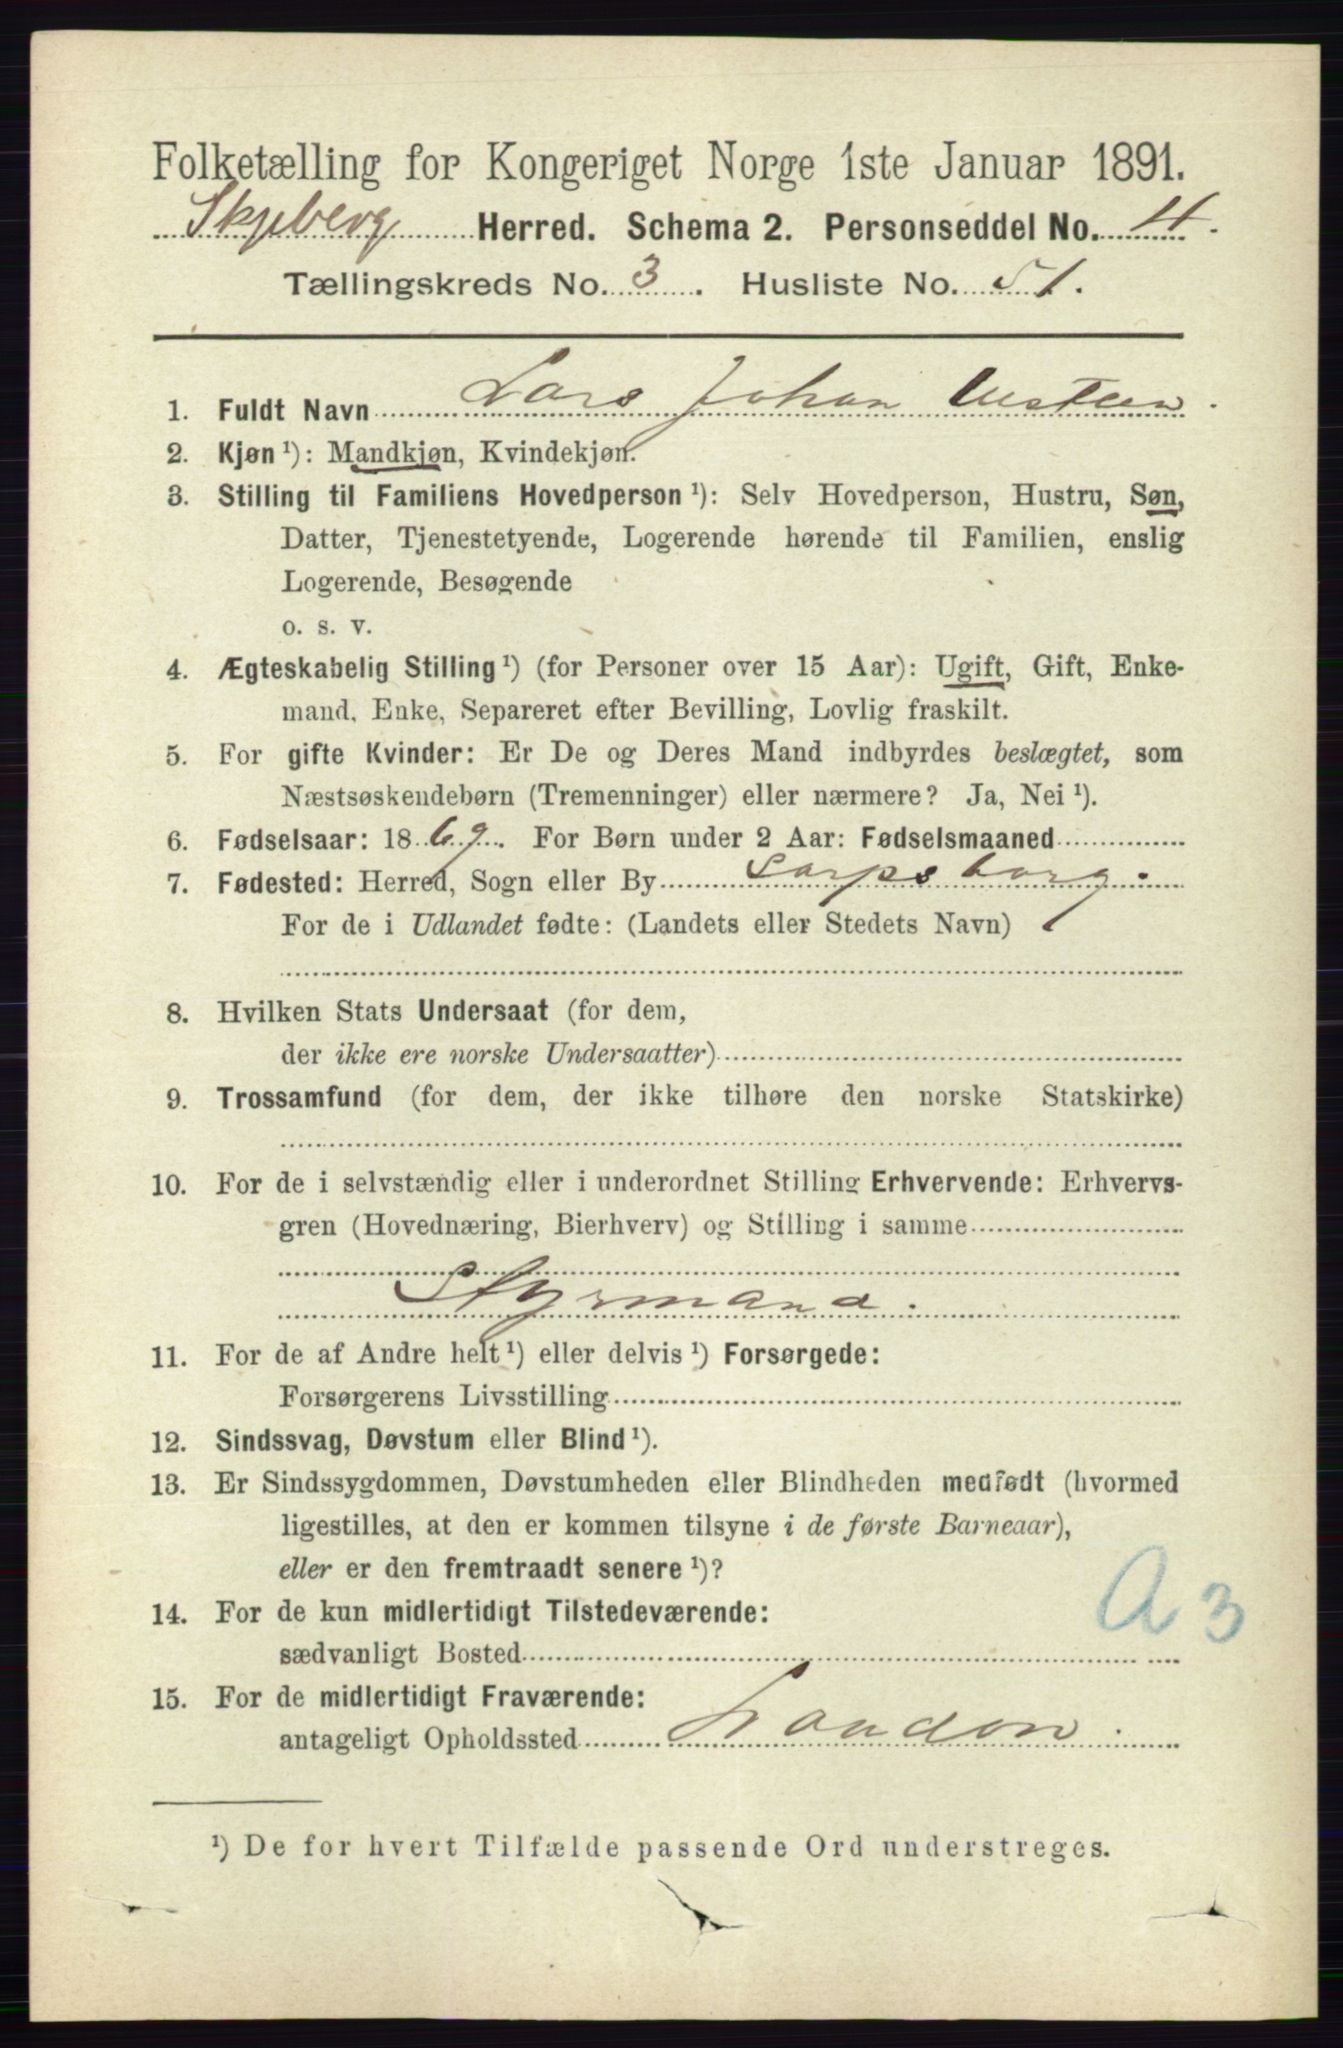 Folketælling for Kongeriget Norge 1ste Januar 1891.
Skjeberg Herred. Schema 2. Personseddel No. 4.
Tællingskreds No. 3. Husliste No. 51.
1. Fuldt Navn Lars Johan
2. Kjøn ¹): Mandkjøn, Kvindekjøn.
3. Stilling til Familiens Hovedperson ¹): Selv Hovedperson, Hustru, Søn,
Datter, Tjenestetyende, Logerende hørende til Familien, enslig
Logerende, Besøgende
o. s. v.
4. Ægteskabelig Stilling ¹) (for Personer over 15 Aar): Ugift, Gift, Enke-
mand, Enke, Separeret efter Bevilling, Lovlig fraskilt.
5. For gifte Kvinder: Er De og Deres Mand indbyrdes beslægtet, som
Næstsøskendebørn (Tremenninger) eller nærmere? Ja, Nei ¹).
6. Fødselsaar: 1869. For Børn under 2 Aar: Fødselsmaaned
7. Fødested: Herred, Sogn eller By Sarpsborg.
For de i Udlandet fødte: (Landets eller Stedets Navn)
8. Hvilken Stats Undersaat (for dem,
der ikke ere norske Undersaatter)
9. Trossamfund (for dem, der ikke tilhøre den norske Statskirke)
10. For de i selvstændig eller i underordnet Stilling Erhvervende: Erhvervs-
gren (Hovednæring, Bierhverv) og Stilling i samme
Styrmand.
11. For de af Andre helt ¹) eller delvis ¹) Forsørgede:
Forsørgerens Livsstilling
12. Sindssvag, Døvstum eller Blind ¹).
13. Er Sindssygdommen, Døvstumheden eller Blindheden medfødt (hvormed
ligestilles, at den er kommen tilsyne i de første Barneaar),
eller er den fremtraadt senere ¹)?
A 3
14. For de kun midlertidigt Tilstedeværende:
sædvanligt Bosted
15. For de midlertidigt Fraværende:
antageligt Opholdssted London.
¹) De for hvert Tilfælde passende Ord understreges.